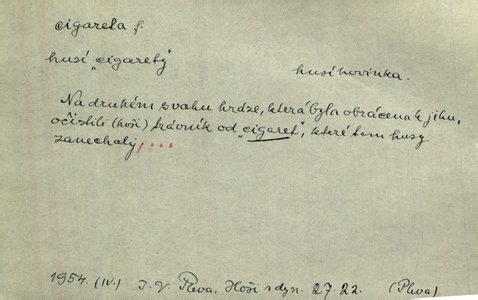 cigareta f.
husí „cigarety"
husí hovínka.
Na druhém svahu hráze, která byla obrácena k jihu,
očistili (hoši) trávník od „cigaret", které tam husy
zanechaly, ...
1954. (IV.) J. V. Pleva, Hoši s dyn. 27. 22. (Pleva)